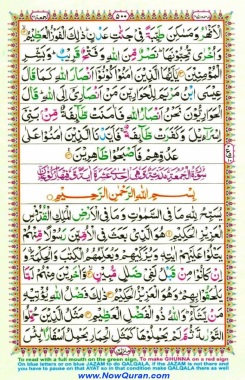 الْاَنْهٰرُ وَمَسٰكِنَ طَيِّبَةً فِيْ جَنّٰتِ عَدْنٍ ذٰلِكَ الْفَوْزُ الْعَظِيْمُ
وَاُخْرٰى تُحِبُّوْنَهَا نَصْرٌ مِّنَ اللهِ وَفَتْحٌ قَرِيْبٌ وَبَشِّرِ
الْمُؤْمِنِيْنَ يٰاَيُّهَا الَّذِيْنَ اٰمَنُوْا كُوْنُوْا اَنْصَارَ اللهِ كَمَا قَالَ
عِيْسَى ابْنُ مَرْيَمَ لِلْحَوَارِيّٖنَ مَنْ اَنْصَارِيْ اِلَى اللهِ قَالَ
الْحَوَارِيُّوْنَ نَحْنُ اَنْصَارُ اللهِ فَاٰمَنَتْ طَّآئِفَةٌ مِّنْ بَنِيْ
اِسْرَآءِيْلَ وَكَفَرَتْ طَّآئِفَةٌ فَاَيَّدْنَا الَّذِيْنَ اٰمَنُوْا عَلٰى
عَدُوِّهِمْ فَاَصْبَحُوْا ظٰهِرِيْنَ
بِسْمِ اللهِ الرَّحْمٰنِ الرَّحِيْمِ
يُسَبِّحُ لِلّٰهِ مَا فِي السَّمٰوٰتِ وَمَا فِي الْاَرْضِ الْمَلِكِ الْقُدُّوْسِ
الْعَزِيْزِ الْحَكِيْمِ هُوَ الَّذِيْ بَعَثَ فِي الْاُمِّيّٖنَ رَسُوْلًا مِّنْهُمْ
يَتْلُوْا عَلَيْهِمْ اٰيٰتِهٖ وَيُزَكِّيْهِمْ وَيُعَلِّمُهُمُ الْكِتٰبَ وَالْحِكْمَةَ وَ
اِنْ كَانُوْا مِنْ قَبْلُ لَفِيْ ضَلٰلٍ مُّبِيْنٍ وَّاٰخَرِيْنَ مِنْهُمْ لَمَّا
يَلْحَقُوْا بِهِمْ وَهُوَ الْعَزِيْزُ الْحَكِيْمُ ذٰلِكَ فَضْلُ اللهِ يُؤْتِيْهِ
مَنْ يَّشَآءُ وَاللهُ ذُو الْفَضْلِ الْعَظِيْمِ مَثَلُ الَّذِيْنَ حُمِّلُوا
التَّوْرٰىةَ ثُمَّ لَمْ يَحْمِلُوْهَا كَمَثَلِ الْحِمَارِ يَحْمِلُ اَسْفَارًا بِئْسَ
To read with a full mouth on the green sign, To make GHUNNA on a red sign
On blue letters or on blue JAZAM to do QALQALA, if the JAZAM is not there and
you have to pause on that AYAT so in that condition make QALQALA there as well
www.NowQuran.com